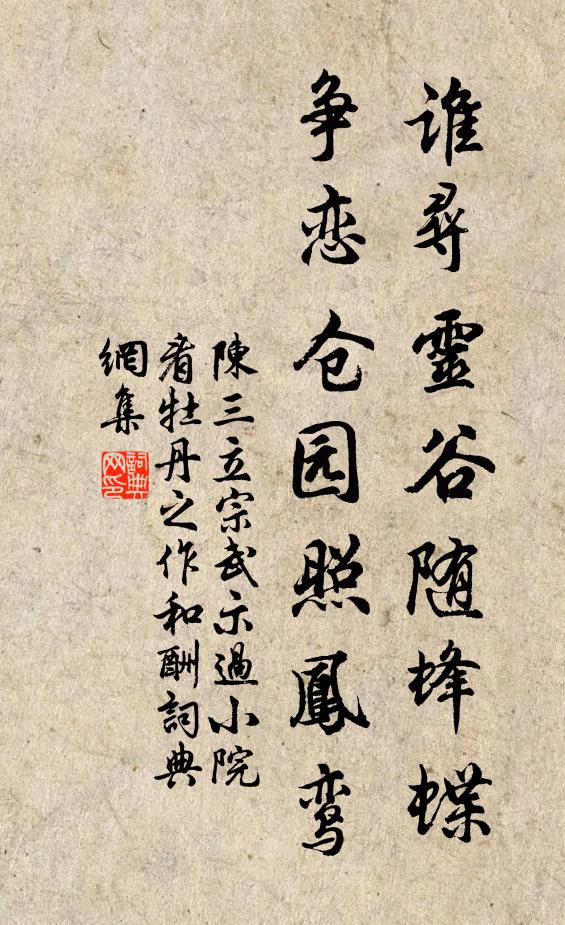 谁寻靈谷随蜂蝶
争恋仓园照鳳鸾
陳三立宗武示過小院
看牡丹之作和酬詞典
網集
詞典网印